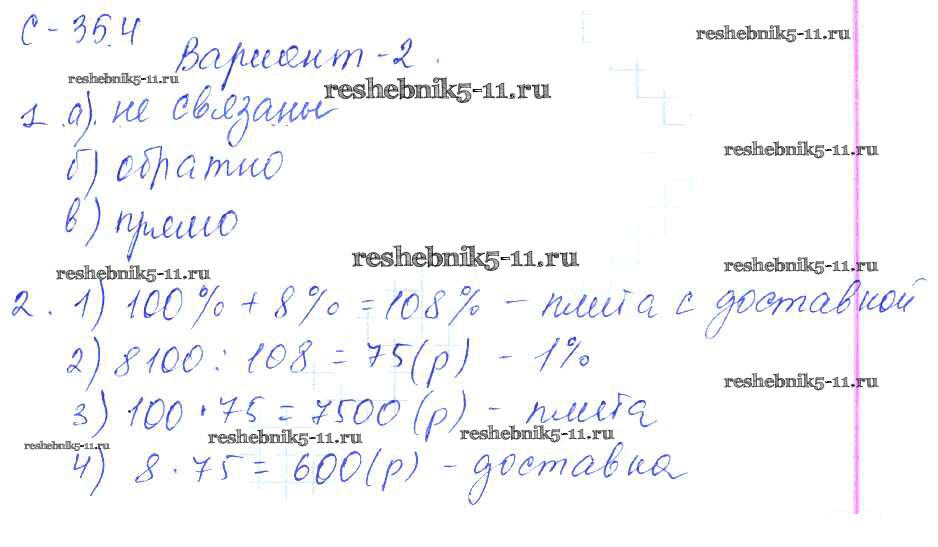 С - 35.4
reshebnik5-11.ru
Вариант - 2.
reshebnik5-11.ru
reshebnik5-11.ru
1 а). не связаны
б) обратно
reshebnik5-11.ru
в) прямо
reshebnik5-11.ru
reshebnik5-11.ru
reshebnik5-11.ru
2. 1) 100% + 8% = 108% - плита с доставкой
2) 8100 : 108 = 75 (р) - 1%
reshebnik5-11.ru
3) 100 · 75 = 7500 (р) - плита
reshebnik5-11.ru
reshebnik5-11.ru
reshebnik5-11.ru
4) 8 · 75 = 600 (р) - доставка